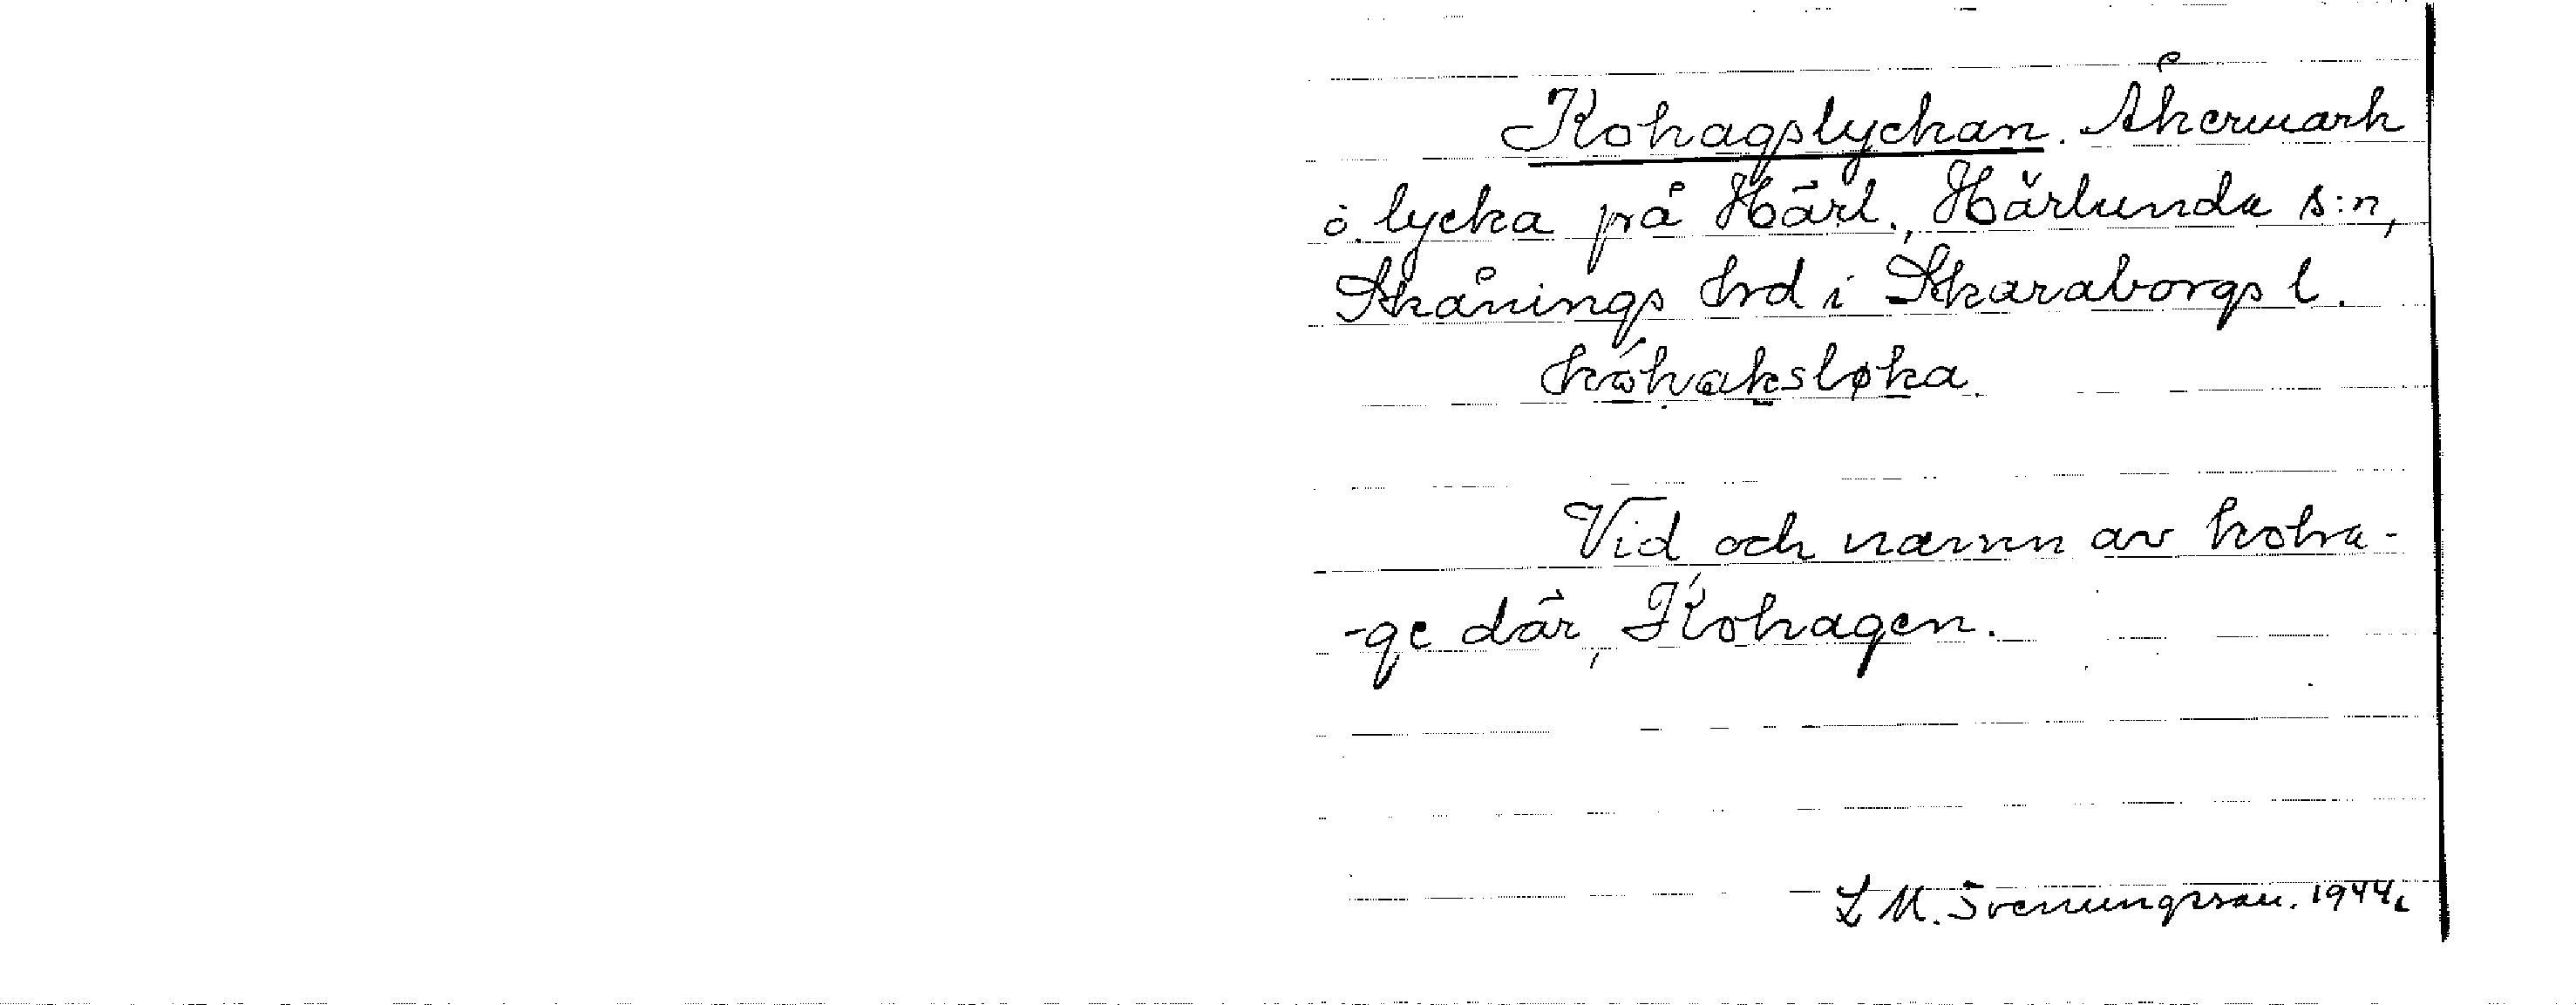 Kohagslyckan. Åkermark
o. lycka på Härl., Härlunda s:n,
Skånings hrd i Skaraborgs l.
kóhaksløka.
Vid och namn av koha-
-ge där, Kohagen.
L M. Svenungsson. 1944.